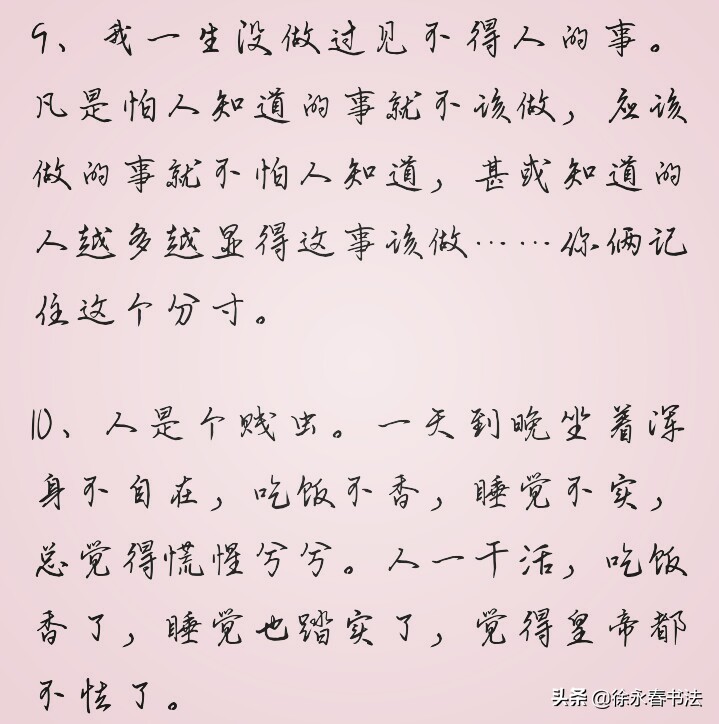 9、我一生没做过见不得人的事。
凡是怕人知道的事就不该做，应该
做的事就不怕人知道，甚或知道的
人越多越显得这事该做……你俩记
住这个分寸。
10、人是个贱虫。一天到晚坐着浑
身不自在，吃饭不香，睡觉不实，
总觉得慌惺兮兮。人一干活，吃饭
香了，睡觉也踏实了，觉得皇帝都
不怯了。
头条 @徐永春书法